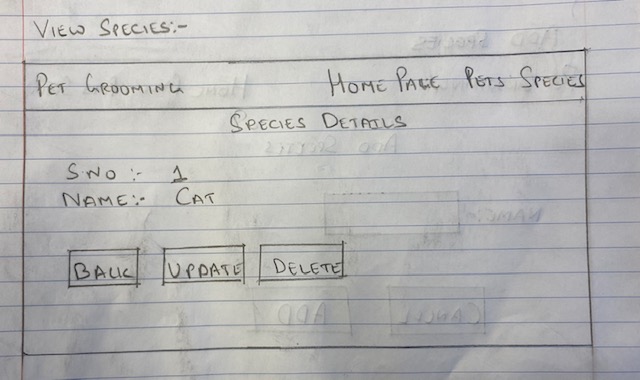 VIEW SPECIES:-
PET GROOMING HOME PAGE PETS SPECIES
SPECIES DETAILS
S.NO :- 1
NAME:- CAT
BACK UPDATE DELETE